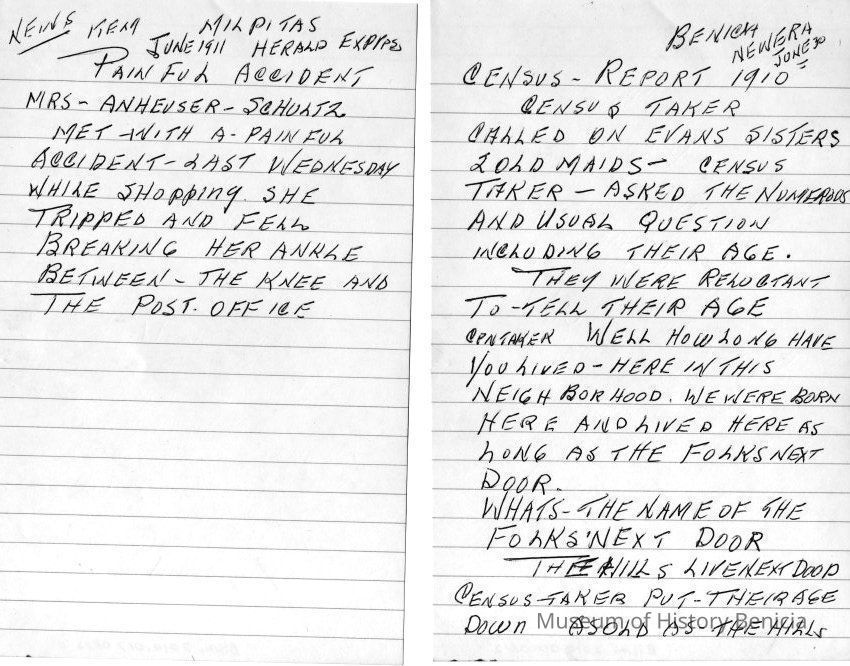 NEWS ITEM MILPITAS
JUNE 1911 HERALD EXPRES
PAINFUL ACCIDENT
MRS- ANHEUSER-SCHULTZ
MET-WITH A-PAINFUL
ACCIDENT-LAST WEDNESDAY
WHILE SHOPPING. SHE
TRIPPED AND FELL
BREAKING HER ANKLE
BETWEEN-THE KNEE AND
THE POST.OFFICE
BENICIA
NEW ERA
JUNE 30
CENSUS-REPORT 1910
CENSUS TAKER
CALLED ON EVANS SISTERS
2 OLD MAIDS- CENSUS
TAKER-ASKED THE NUMEROUS
AND USUAL QUESTION
INCLUDING THEIR AGE.
THEY WERE RELUCTANT
TO-TELL THEIR AGE
CENTAKER WELL HOW LONG HAVE
YOU LIVED-HERE IN THIS
NEIGHBORHOOD. WE WERE BORN
HERE AND LIVED HERE AS
LONG AS THE FOLKS NEXT
DOOR.
WHATS-THE NAME OF THE
FOLKS'NEXT DOOR
THE HILLS LIVE NEXT DOOR
CENSUS-TAKER PUT-THEIR AGE
DOWN AS OLD AS THE HILLS
Museum of History Benicia